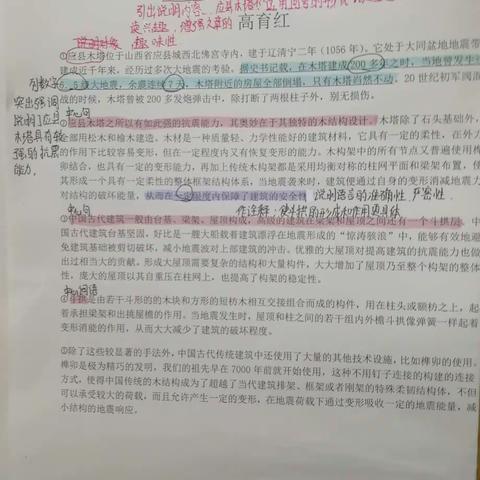 引出说明内容，应县木塔
读兴趣，增强文章的
说明对象 趣味性
高育红
①应县木塔位于山西省应县城西北佛宫寺内，建于辽清宁二年（1056 年）。它处于大同盆地地震带
建成近千年来，经历过多次大地震的考验。据史书记载，在木塔建成 200 多年之时，当地曾发生
6.5 级大地震，余震连续 7 天，木塔附近的房屋全部倒塌，只有木塔岿然不动。20 世纪初军阀混
战的时候，木塔曾被 200 多发炮弹击中，除打断了两根柱子外，别无损伤。
列数字
突出强调
说明了应县
木塔具有较
强的抗震
能力。
中心句
②应县木塔之所以有如此强的抗震能力，其奥妙在于其独特的木结构设计。木塔除了石头基础外，
全部用松木和榆木建造。木材是一种质量轻、力学性能好的建筑材料，它具有一定的柔性，在外力
的作用下比较容易变形，但在一定程度内又有恢复变形的能力。木构架中的所有节点又普遍使用榫
卯结合，也具有一定的变形能力，再加上传统木构架都是采用均对称的柱网平面和梁架布置，使
其形成一个具有一定柔性的整体框架结构体系，当地震袭来时，建筑便通过自身的变形消减地震力
对结构的破坏能量，从而在一定限度内保障了建筑的安全性
说明语言的准确性，严密性
中心句
作诠释：使斗拱的形成和作用更具体
③中国古代建筑一般由台基、梁架、屋顶构成，高级的建筑在梁架和屋顶之间还有一个斗拱层。中
国古代建筑台基坚固，好比是一艘大船载着建筑漂浮在地震形成的“惊涛骇浪”中，能够有效地避
免建筑基础被剪切破坏，减小地震波对上部建筑的冲击。优雅的大屋顶对提高建筑的抗震能力也做
出过相当大的贡献。形成大屋顶需要复杂的结构和大量构件，大大增加了屋顶乃至整个构架的整体
性，庞大的屋顶以其自重压在柱网上，也提高了构架的稳定性。
④斗拱是由若干斗形的的木块和方形的短枋木相互交接组合而成的构件，用在柱头或额枋之上，起
着承担梁架和出挑屋檐的作用。当地震发生时，屋顶和柱之间的若干组内外檐斗拱像弹簧一样起着
变形消能的作用，从而大大减少了建筑的破坏程度。
⑤除了这些较显著的手法外，中国古代传统建筑中还使用了大量的其他技术设施，比如榫卯的使用。
榫卯是极为精巧的发明，我们的祖先早在 7000 年前就开始使用，这种不用钉子连接的构建的连接
方式，使得中国传统的木结构成为了超越了当代建筑排架、框架或者刚架的特殊柔韧结构体，不但
可以承受较大的荷载，而且允许产生一定的变形，在地震荷载下通过变形吸收一定的地震能量，减
小结构的地震响应。